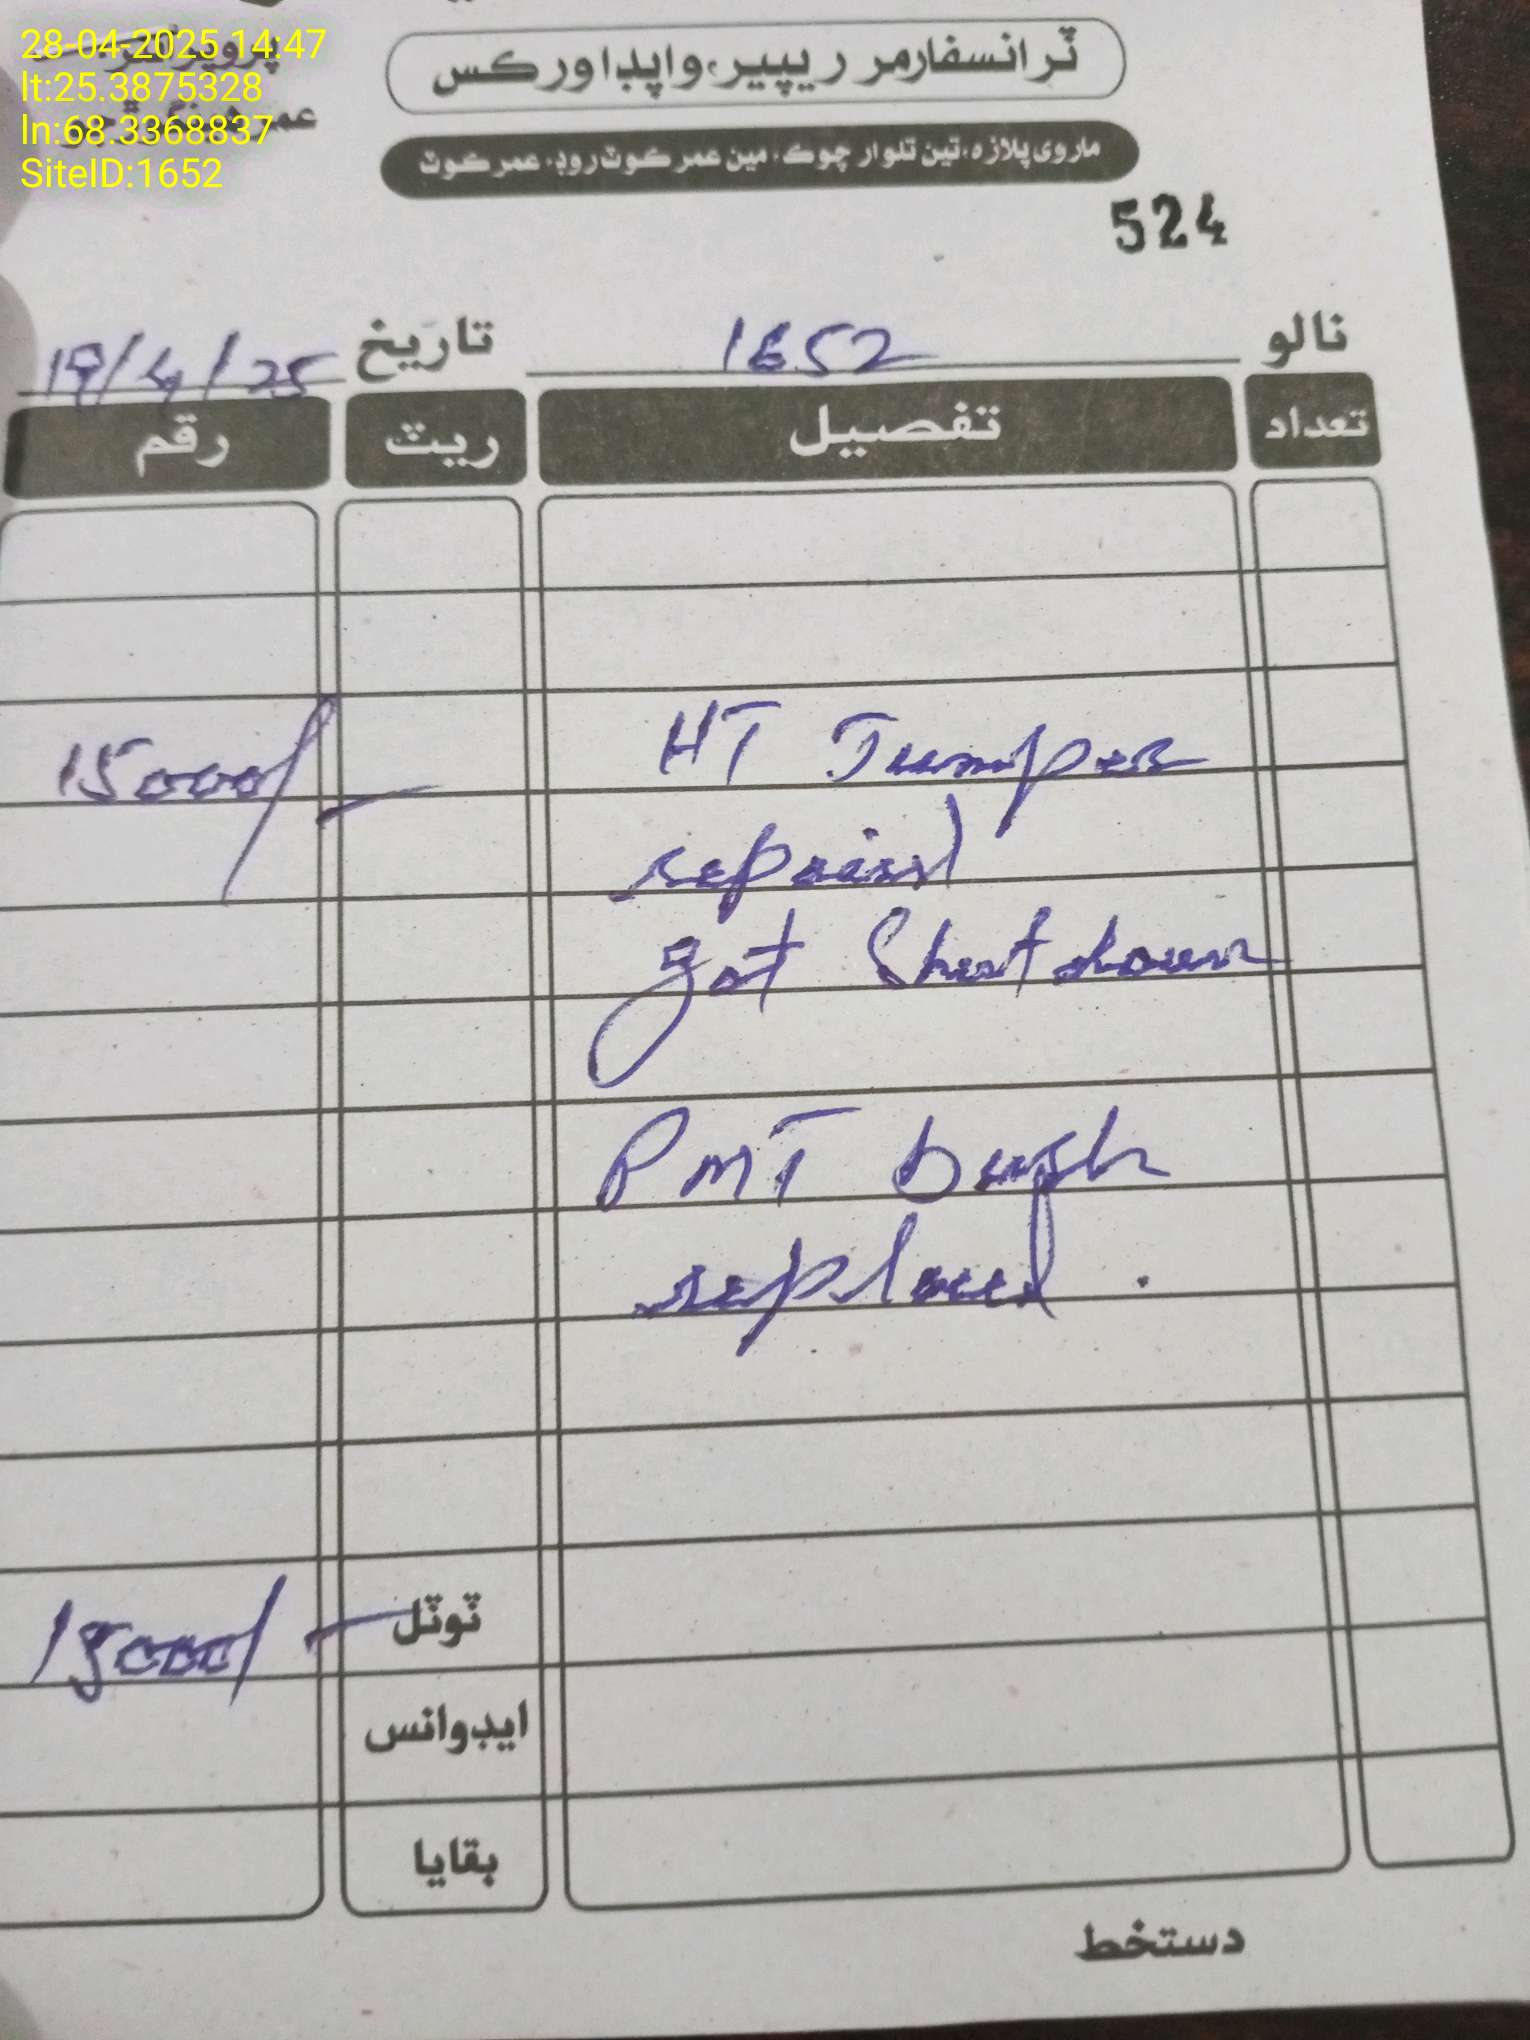 28-04-2025 14:47
lt:25.3875328
ln:68.3368837
SiteID:1652
ٽرانسفارمر ريپير، واپڊا ورڪس
ماروي پلازه، ٽين تلوار چوڪ، مين عمرڪوٽ روڊ، عمرڪوٽ
524
نالو 1652 تاريخ 19/4/25
تعداد تفصيل ريٽ رقم
HT Jumper 15000/-
repaird
got Shutdown
PMT bush
replaced.
ٽوٽل 15000/-
ايڊوانس
بقايا
دستخط